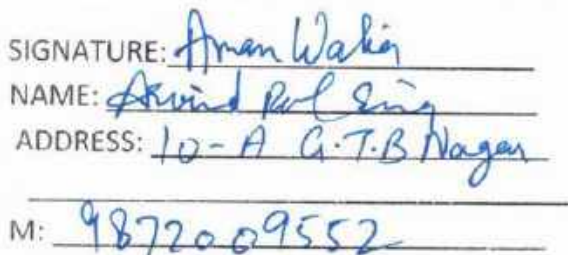 SIGNATURE: Aman Walia
NAME: Arvind Pal Sing
ADDRESS: 10-A G.T.B Nagar
M: 9872009552